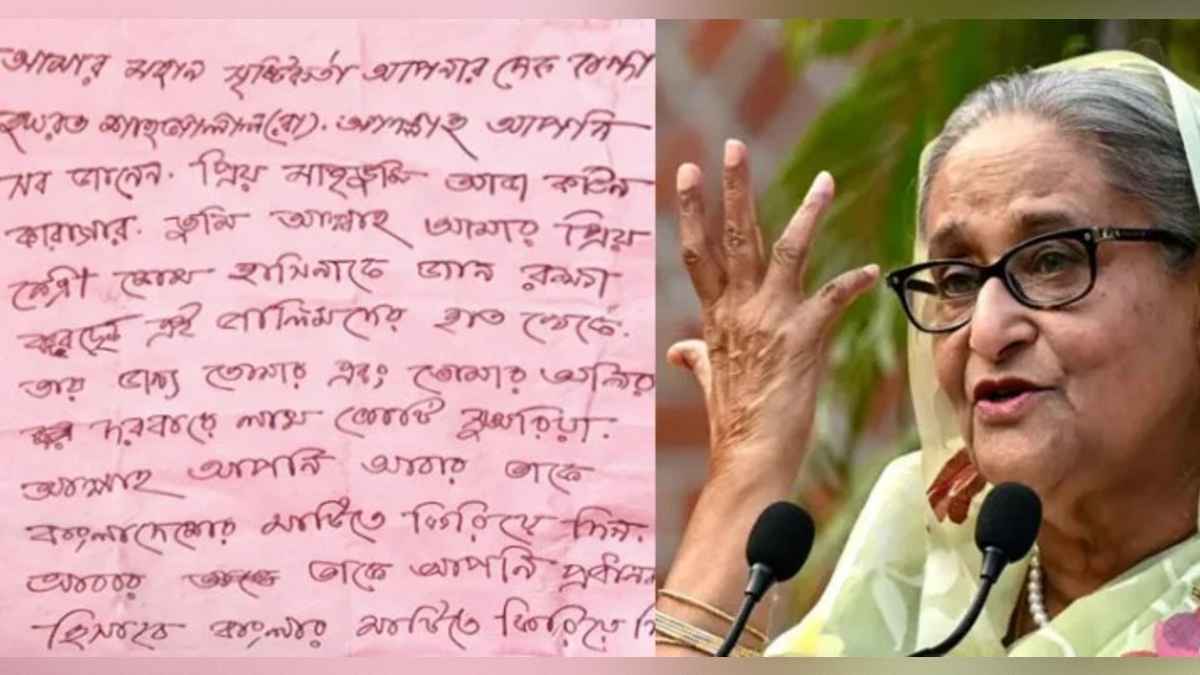 আমার মহান সৃষ্টিকর্তা আপনার নেক বান্দা
হযরত শাহজালাল(রা). আল্লাহ আপনি
সব জানেন. প্রিয় মাতৃভূমি আজ কঠিন
কারাগার. তুমি আল্লাহ আমার প্রিয়
নেত্রী শেখ হাসিনাকে জান রক্ষা
করছেন এই জালিমদের হাত থেকে.
তার জন্য তোমার এবং তোমার অলির
দরবারে লাখ কোটি শুকরিয়া.
আল্লাহ আপনি আবার তাকে
বাংলাদেশের মাটিতে ফিরিয়ে দিন.
আবার তাকে আপনি
হিসাবে বাংলার মাটিতে ফিরিয়ে